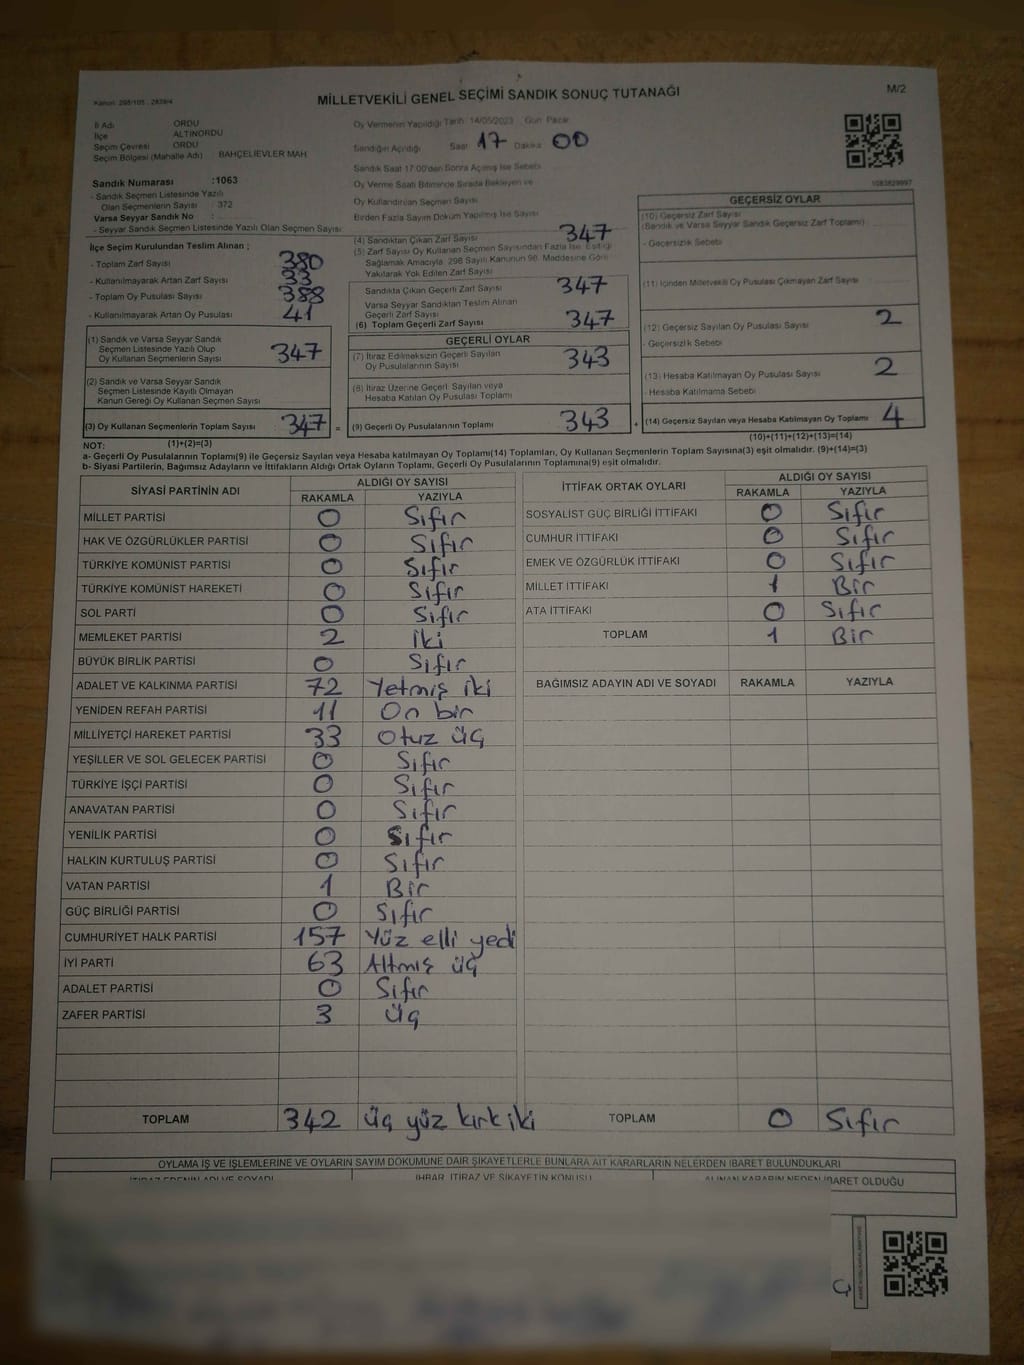 Kanun: 298/105 , 2839/4
MİLLETVEKİLİ GENEL SEÇİMİ SANDIK SONUÇ TUTANAĞI
M/2
İl Adı ORDU
İlçe ALTINORDU
Seçim Çevresi ORDU
Seçim Bölgesi (Mahalle Adı) BAHÇELİEVLER MAH.
Oy Vermenin Yapıldığı Tarih: 14/05/2023 Gün: Pazar
Sandığın Açıldığı Saat 17 Dakika 00
Sandık Saat 17:00'den Sonra Açılmış İse Sebebi
Oy Verme Saati Bitiminde Sırada Bekleyen ve
Oy Kullandırılan Seçmen Sayısı
Birden Fazla Sayım Döküm Yapılmış İse Sayısı
1083829997
Sandık Numarası :1063
- Sandık Seçmen Listesinde Yazılı
Olan Seçmenlerin Sayısı : 372
Varsa Seyyar Sandık No :
- Seyyar Sandık Seçmen Listesinde Yazılı Olan Seçmen Sayısı
İlçe Seçim Kurulundan Teslim Alınan ;
- Toplam Zarf Sayısı 380
- Kullanılmayarak Artan Zarf Sayısı 33
- Toplam Oy Pusulası Sayısı 388
- Kullanılmayarak Artan Oy Pusulası 41
(1) Sandık ve Varsa Seyyar Sandık
Seçmen Listesinde Yazılı Olup
Oy Kullanan Seçmenlerin Sayısı 347
(2) Sandık ve Varsa Seyyar Sandık
Seçmen Listesinde Kayıtlı Olmayan
Kanun Gereği Oy Kullanan Seçmen Sayısı
(3) Oy Kullanan Seçmenlerin Toplam Sayısı 347 =
(4) Sandıktan Çıkan Zarf Sayısı 347
(5) Zarf Sayısı Oy Kullanan Seçmen Sayısından Fazla İse, Eşitliği
Sağlamak Amacıyla, 298 Sayılı Kanunun 98. Maddesine Göre
Yakılarak Yok Edilen Zarf Sayısı
Sandıkta Çıkan Geçerli Zarf Sayısı 347
Varsa Seyyar Sandıktan Teslim Alınan
Geçerli Zarf Sayısı
(6) Toplam Geçerli Zarf Sayısı 347
GEÇERLİ OYLAR
(7) İtiraz Edilmeksizin Geçerli Sayılan
Oy Pusulalarının Sayısı 343
(8) İtiraz Üzerine Geçerli Sayılan veya
Hesaba Katılan Oy Pusulası Toplamı
(9) Geçerli Oy Pusulalarının Toplamı 343 +
GEÇERSİZ OYLAR
(10) Geçersiz Zarf Sayısı
(Sandık ve Varsa Seyyar Sandık Geçersiz Zarf Toplamı)
- Geçersizlik Sebebi
(11) İçinden Milletvekili Oy Pusulası Çıkmayan Zarf Sayısı
(12) Geçersiz Sayılan Oy Pusulası Sayısı 2
- Geçersizlik Sebebi
(13) Hesaba Katılmayan Oy Pusulası Sayısı 2
- Hesaba Katılmama Sebebi
(14) Geçersiz Sayılan veya Hesaba Katılmayan Oy Toplamı 4
NOT: (1)+(2)=(3) (10)+(11)+(12)+(13)=(14)
a- Geçerli Oy Pusulalarının Toplamı(9) ile Geçersiz Sayılan veya Hesaba katılmayan Oy Toplamı(14) Toplamları, Oy Kullanan Seçmenlerin Toplam Sayısına(3) eşit olmalıdır. (9)+(14)=(3)
b- Siyasi Partilerin, Bağımsız Adayların ve İttifakların Aldığı Ortak Oyların Toplamı, Geçerli Oy Pusulalarının Toplamına(9) eşit olmalıdır.
SİYASİ PARTİNİN ADI ALDIĞI OY SAYISI
RAKAMLA YAZIYLA
MİLLET PARTİSİ 0 Sıfır
HAK VE ÖZGÜRLÜKLER PARTİSİ 0 Sıfır
TÜRKİYE KOMÜNİST PARTİSİ 0 Sıfır
TÜRKİYE KOMÜNİST HAREKETİ 0 Sıfır
SOL PARTİ 0 Sıfır
MEMLEKET PARTİSİ 2 iki
BÜYÜK BİRLİK PARTİSİ 0 Sıfır
ADALET VE KALKINMA PARTİSİ 72 Yetmiş iki
YENİDEN REFAH PARTİSİ 11 On bir
MİLLİYETÇİ HAREKET PARTİSİ 33 Otuz üç
YEŞİLLER VE SOL GELECEK PARTİSİ 0 Sıfır
TÜRKİYE İŞÇİ PARTİSİ 0 Sıfır
ANAVATAN PARTİSİ 0 Sıfır
YENİLİK PARTİSİ 0 Sıfır
HALKIN KURTULUŞ PARTİSİ 0 Sıfır
VATAN PARTİSİ 1 Bir
GÜÇ BİRLİĞİ PARTİSİ 0 Sıfır
CUMHURİYET HALK PARTİSİ 157 Yüz elli yedi
İYİ PARTİ 63 Altmış üç
ADALET PARTİSİ 0 Sıfır
ZAFER PARTİSİ 3 üç
TOPLAM 342 üç yüz kırk iki
İTTİFAK ORTAK OYLARI ALDIĞI OY SAYISI
RAKAMLA YAZIYLA
SOSYALİST GÜÇ BİRLİĞİ İTTİFAKI 0 Sıfır
CUMHUR İTTİFAKI 0 Sıfır
EMEK VE ÖZGÜRLÜK İTTİFAKI 0 Sıfır
MİLLET İTTİFAKI 1 Bir
ATA İTTİFAKI 0 Sıfır
TOPLAM 1 Bir
BAĞIMSIZ ADAYIN ADI VE SOYADI RAKAMLA YAZIYLA
TOPLAM 0 Sıfır
OYLAMA İŞ VE İŞLEMLERİNE VE OYLARIN SAYIM DÖKÜMÜNE DAİR ŞİKAYETLERLE BUNLARA AİT KARARLARIN NELERDEN İBARET BULUNDUKLARI
İTİRAZ EDENİN ADI VE SOYADI İHBAR, İTİRAZ VE ŞİKAYETİN KONUSU ALINAN KARARIN NEDEN İBARET OLDUĞU